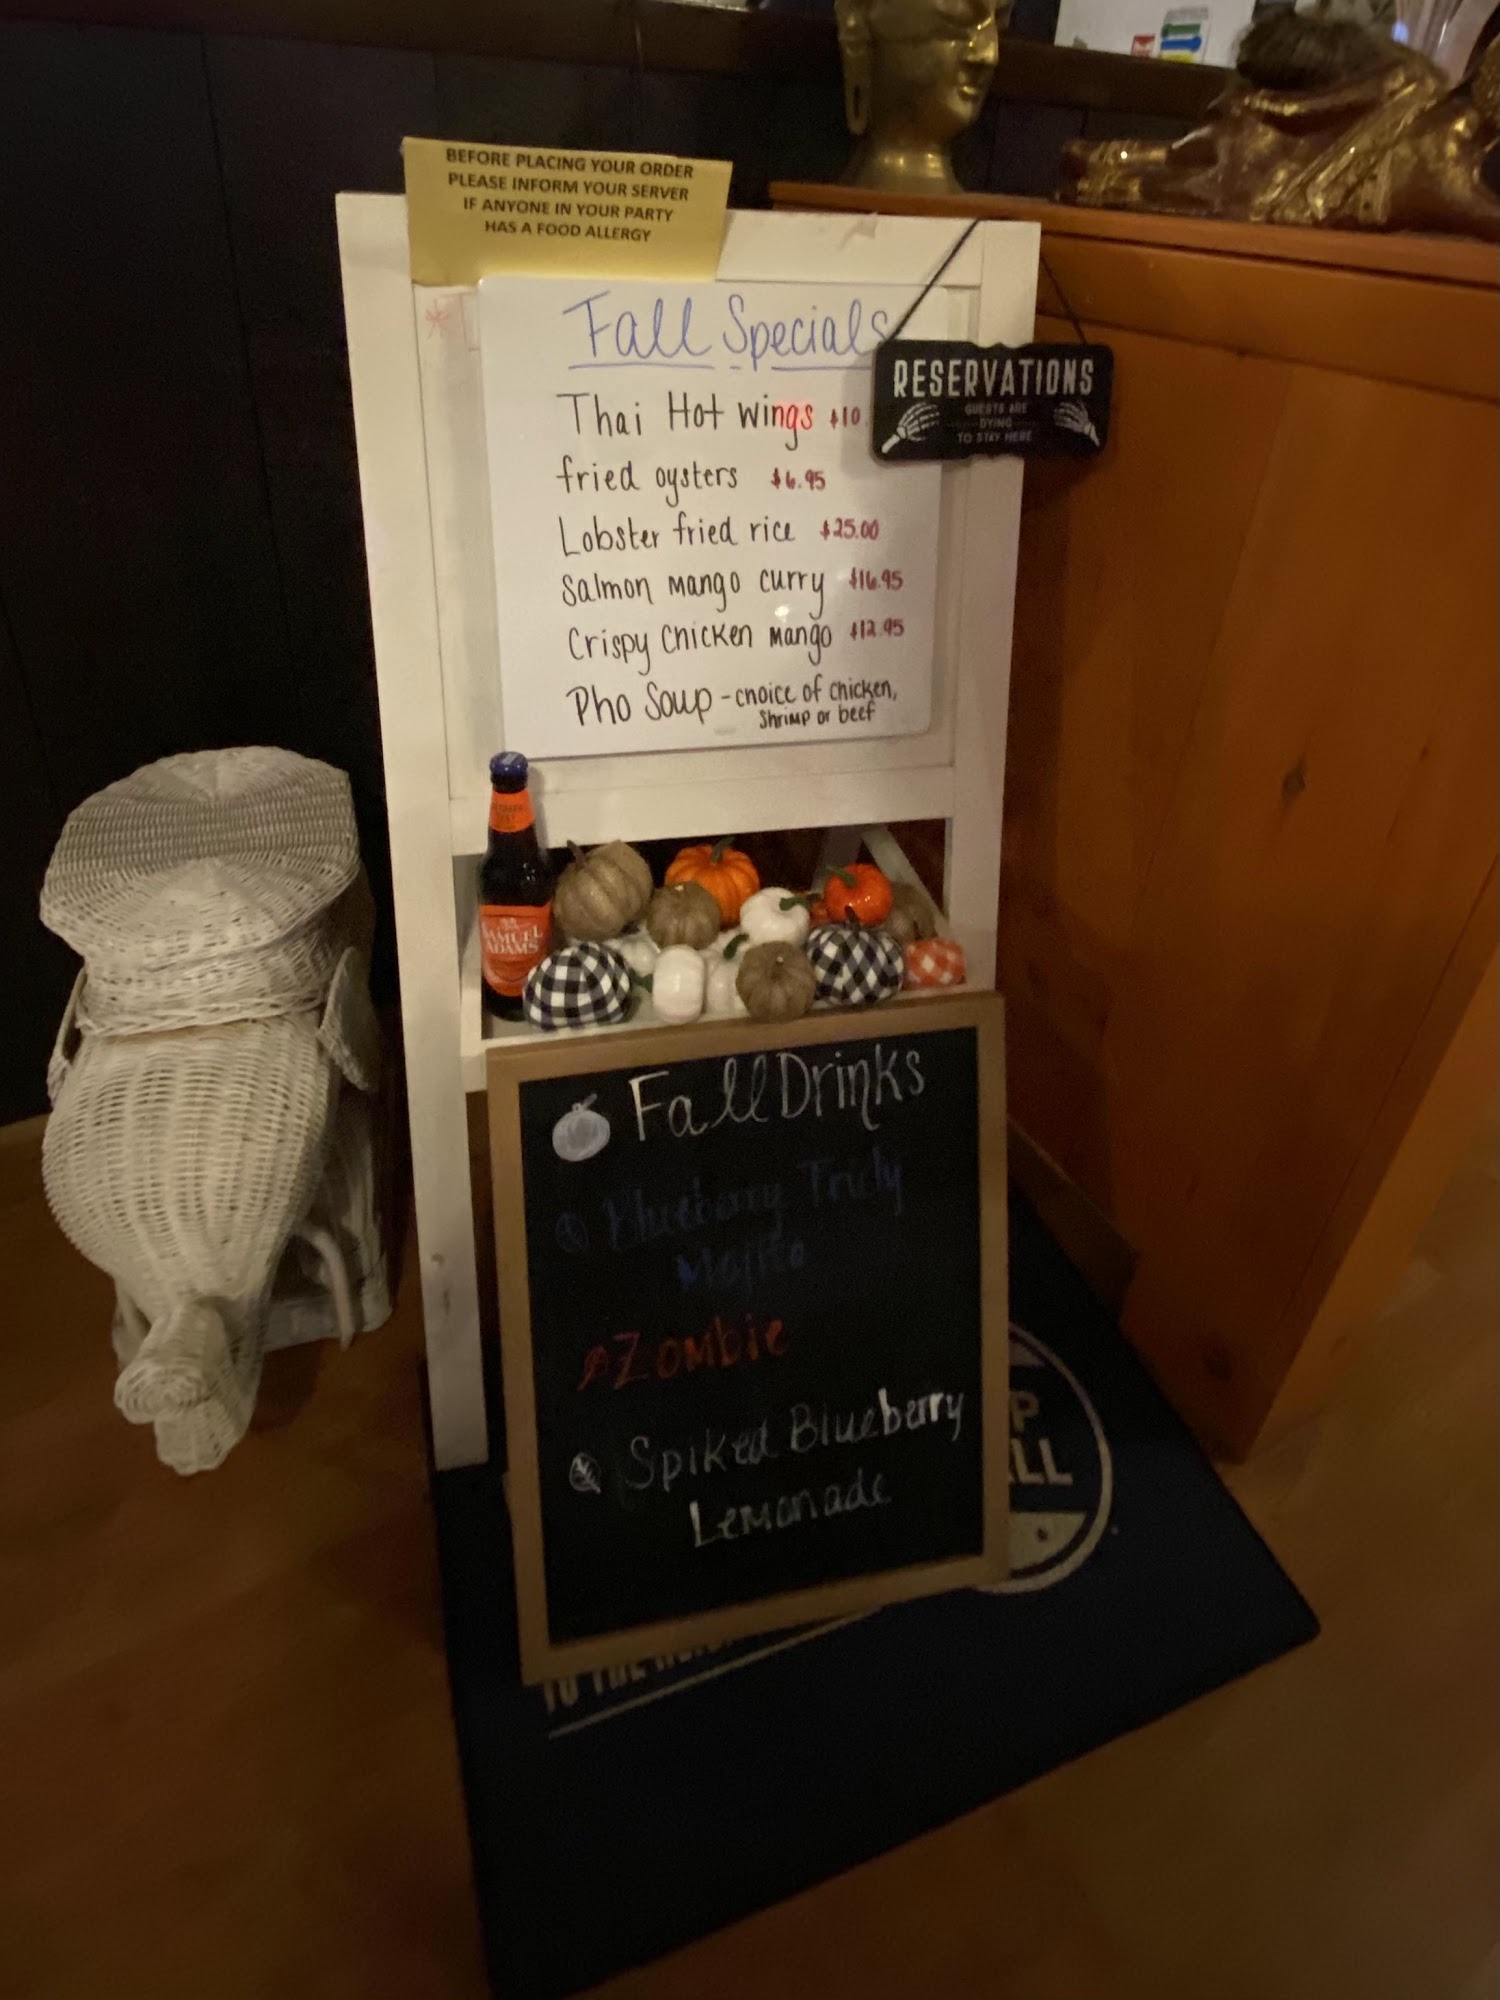 BEFORE PLACING YOUR ORDER
PLEASE INFORM YOUR SERVER
IF ANYONE IN YOUR PARTY
HAS A FOOD ALLERGY
Fall Specials
RESERVATIONS
GUESTS ARE
DYING
TO STAY HERE
Thai Hot wings $10
fried oysters $6.95
Lobster fried rice $25.00
Salmon mango curry $16.95
Crispy chicken mango $12.95
Pho Soup - choice of chicken,
shrimp or beef
SAMUEL
ADAMS
Fall Drinks
Blueberry Truly
Mojito
Zombie
Spiked Blueberry
Lemonade
TO THE